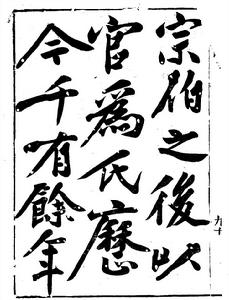 宗伯之後以
官為氏歷
今千有餘年
九十